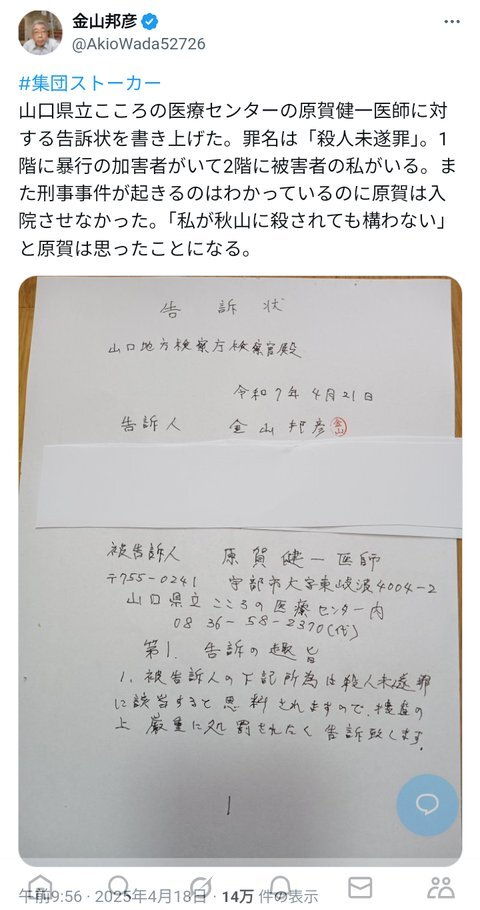 金山邦彦
@AkioWada52726
#集団ストーカー
山口県立こころの医療センターの原賀健一医師に対
する告訴状を書き上げた。罪名は「殺人未遂罪」。1
階に暴行の加害者がいて2階に被害者の私がいる。ま
た刑事事件が起きるのはわかっているのに原賀は入
院させなかった。「私が秋山に殺されても構わない」
と原賀は思ったことになる。
告 訴 状
山口地方検察庁検察官殿
令和7年4月21日
告訴人 金山邦彦 金山
被告訴人 原賀健一医師
〒755-0241 宇部市大字東岐波4004-2
山口県立こころの医療センター内
0836-58-2370(代)
第1. 告訴の趣旨
1. 被告訴人の下記所為は殺人未遂罪
に該当すると思料されますので、捜査の
上厳重に処罰されたく告訴致します。
1
午前9:56 · 2025年4月18日 · 14万 件の表示